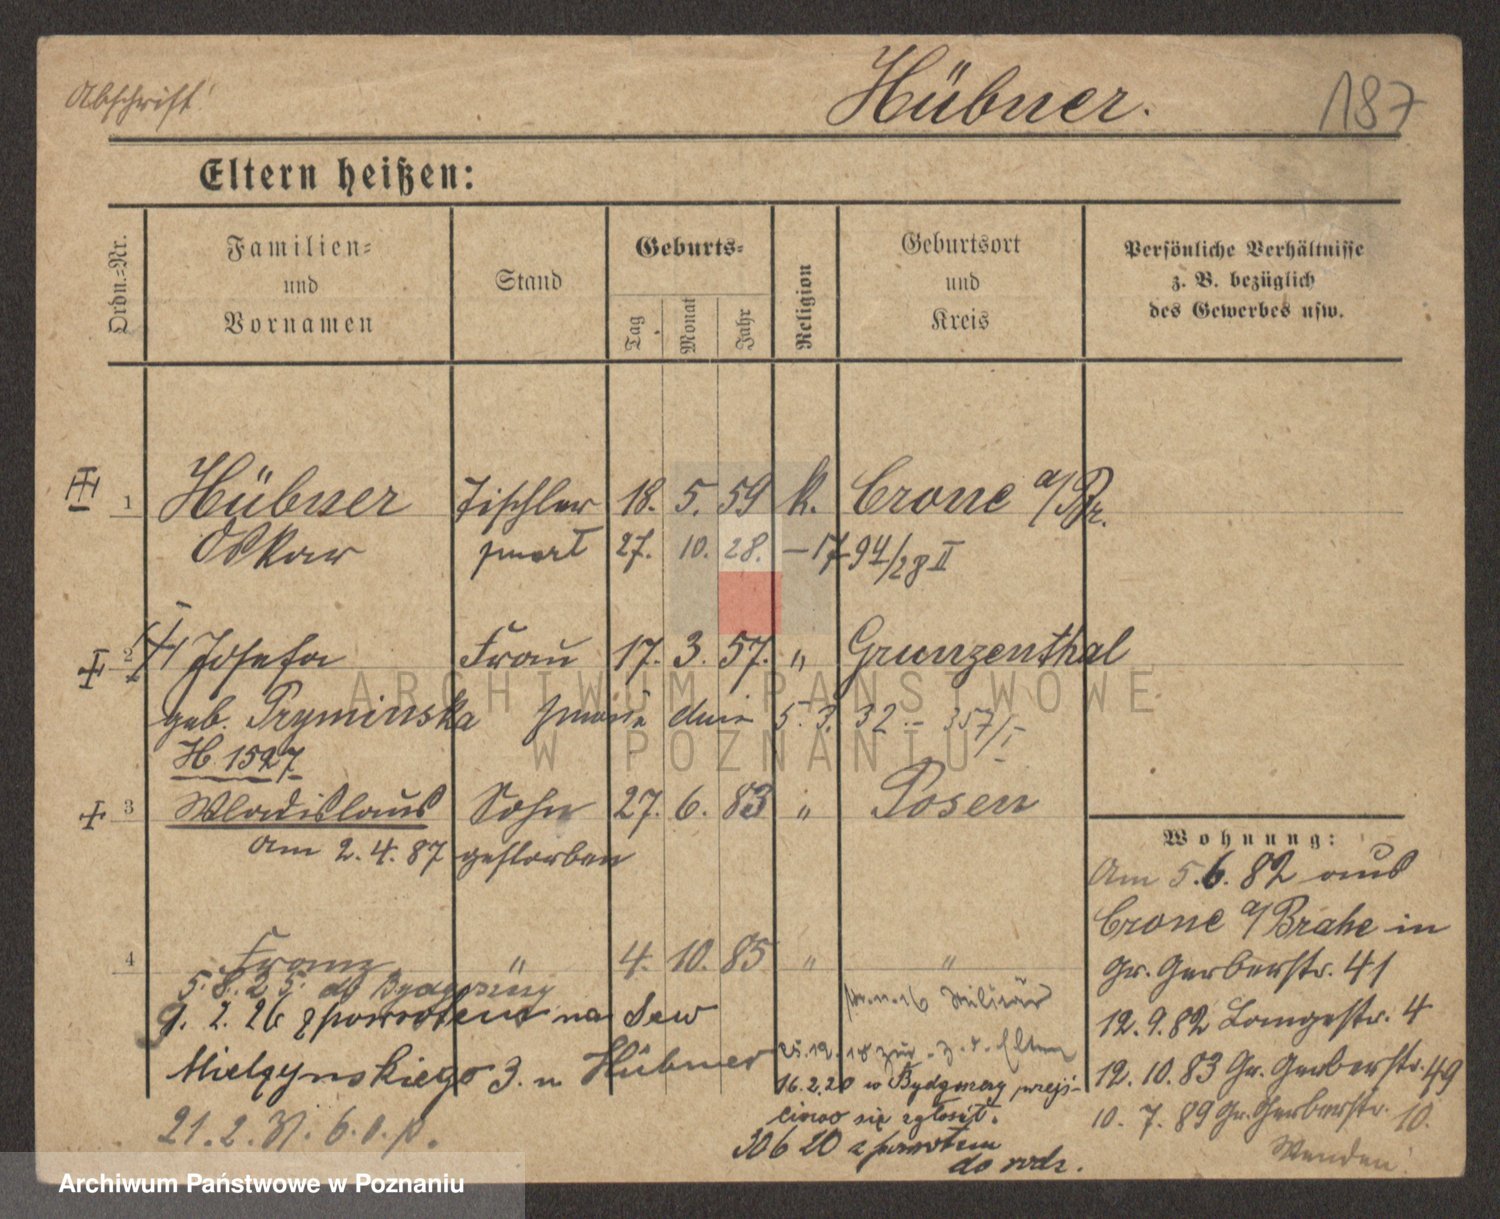 Abschrift!
Hübner.
187
Eltern heißen:
Ordn.=Nr.
Familien=
und
Vornamen
Stand
Geburts=
Tag
Monat
Jahr
Religion
Geburtsort
und
Kreis
Persönliche Verhältnisse
z. B. bezüglich
des Gewerbes usw.
1 Hübner Tischler 18. 5. 59 k. Crone a/Br.
Oskar zmarł 27. 10. 28. – 1794/28 II
2 Josefa Frau 17. 3. 57. " Grunzenthal
geb. Pryminska zmarła dnia 5. 3. 32. – 357/I
H 1527
3 Wladislaus Sohn 27. 6. 83 " Posen
am 2. 4. 87 gestorben
4 Franz " 4. 10. 85 " "
5. 8. 25 do Bydgoszczy
9. 2. 26 z powrotem na Sew
Mielzynskiego 3. u Hübner
21. 2. 31. 6. o. p.
16 Militär
25. 12. 18 zur. z. d. Eltern
16. 2. 20 w Bydgoszczy przejś-
ciowo się zgłosił.
30 6 20 z powrotem
do rodz.
Wohnung:
Am 5. 6. 82 aus
Crone a/Brahe in
Gr. Gerberstr. 41
12. 9. 82 Langestr. 4
12. 10. 83 Gr. Gerberstr. 49
10. 7. 89 Gr. Gerberstr. 10.
Wenden!
ARCHIWUM PAŃSTWOWE
W POZNANIU
Archiwum Państwowe w Poznaniu